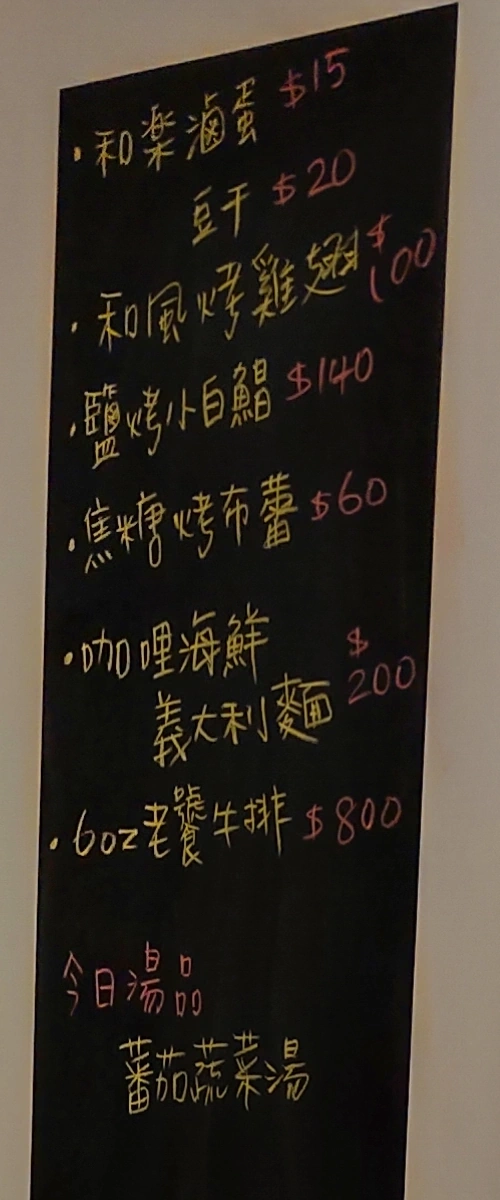 ·和楽滷蛋 $15
豆干 $20
·和風烤雞翅 $100
·鹽烤小白鯧 $140
·焦糖烤布蕾 $60
·咖哩海鮮
義大利麵 $200
·6oz老饕牛排 $800
今日湯品
蕃茄蔬菜湯